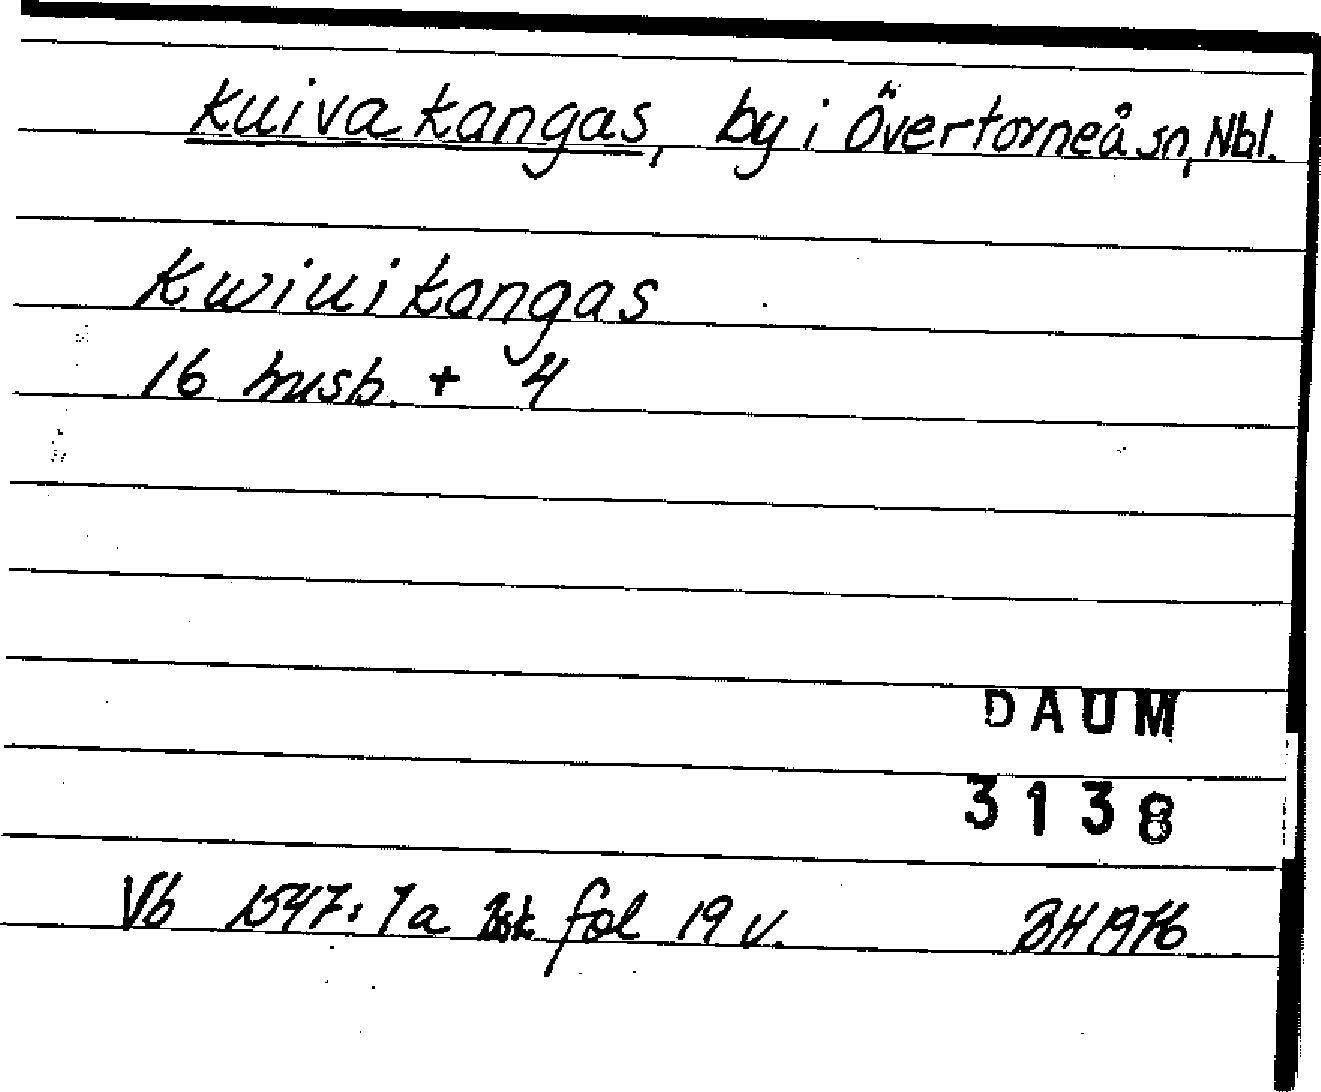 Kuivakangas, by i Övertorneå sn, Nbl.
Kwiuikangas
16 husb. + 4
DAUM
3138
Vb 1547:1a fol 19 v. BH 1976